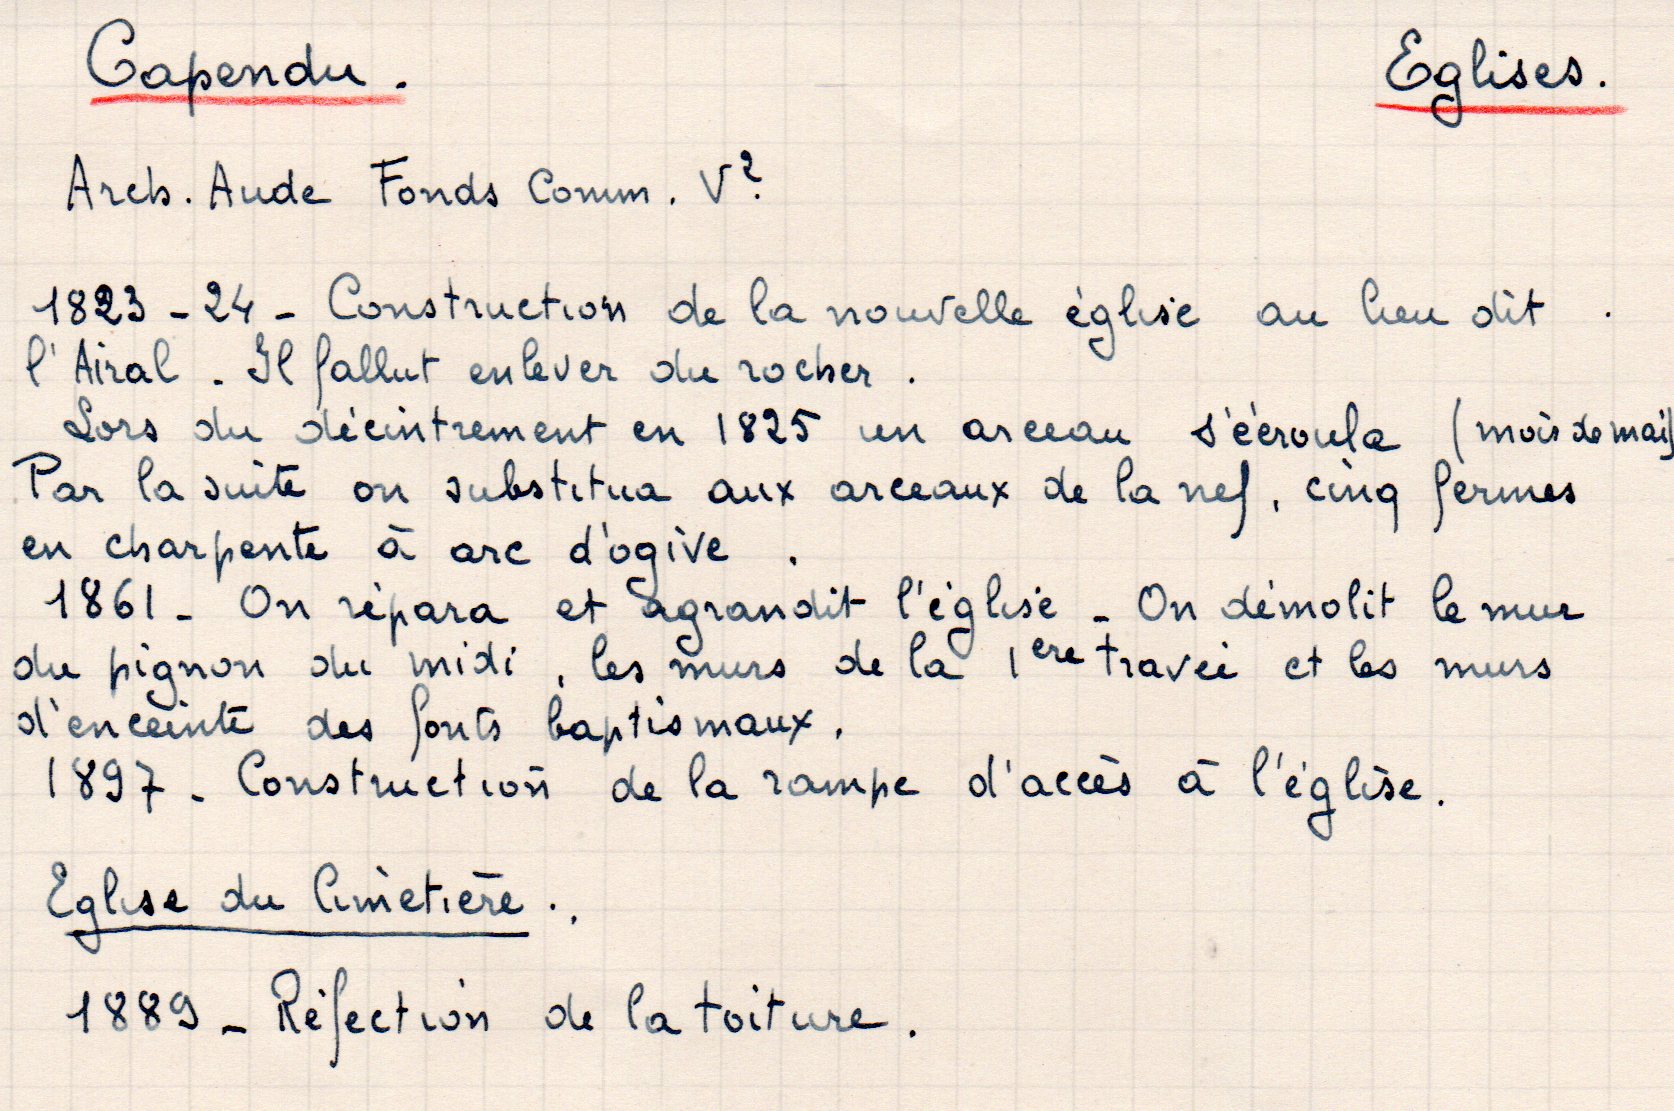 Capendu. Eglises.
Arch. Aude Fonds Comm. V².
1823-24 - Construction de la nouvelle église au lieu dit
l'Airal. Il fallut enlever du rocher.
Lors du décintrement en 1825 un arceau s'écroula (mois de mai)
Par la suite on substitua aux arceaux de la nef, cinq fermes
en charpente à arc d'ogive.
1861 - On répara et agrandit l'église - On démolit le mur
du pignon du midi, les murs de la 1ere travée et les murs
d'enceinte des fonts baptismaux.
1897 - Construction de la rampe d'accès à l'église.
Eglise du Cimetière.
1889 - Réfection de la toiture.